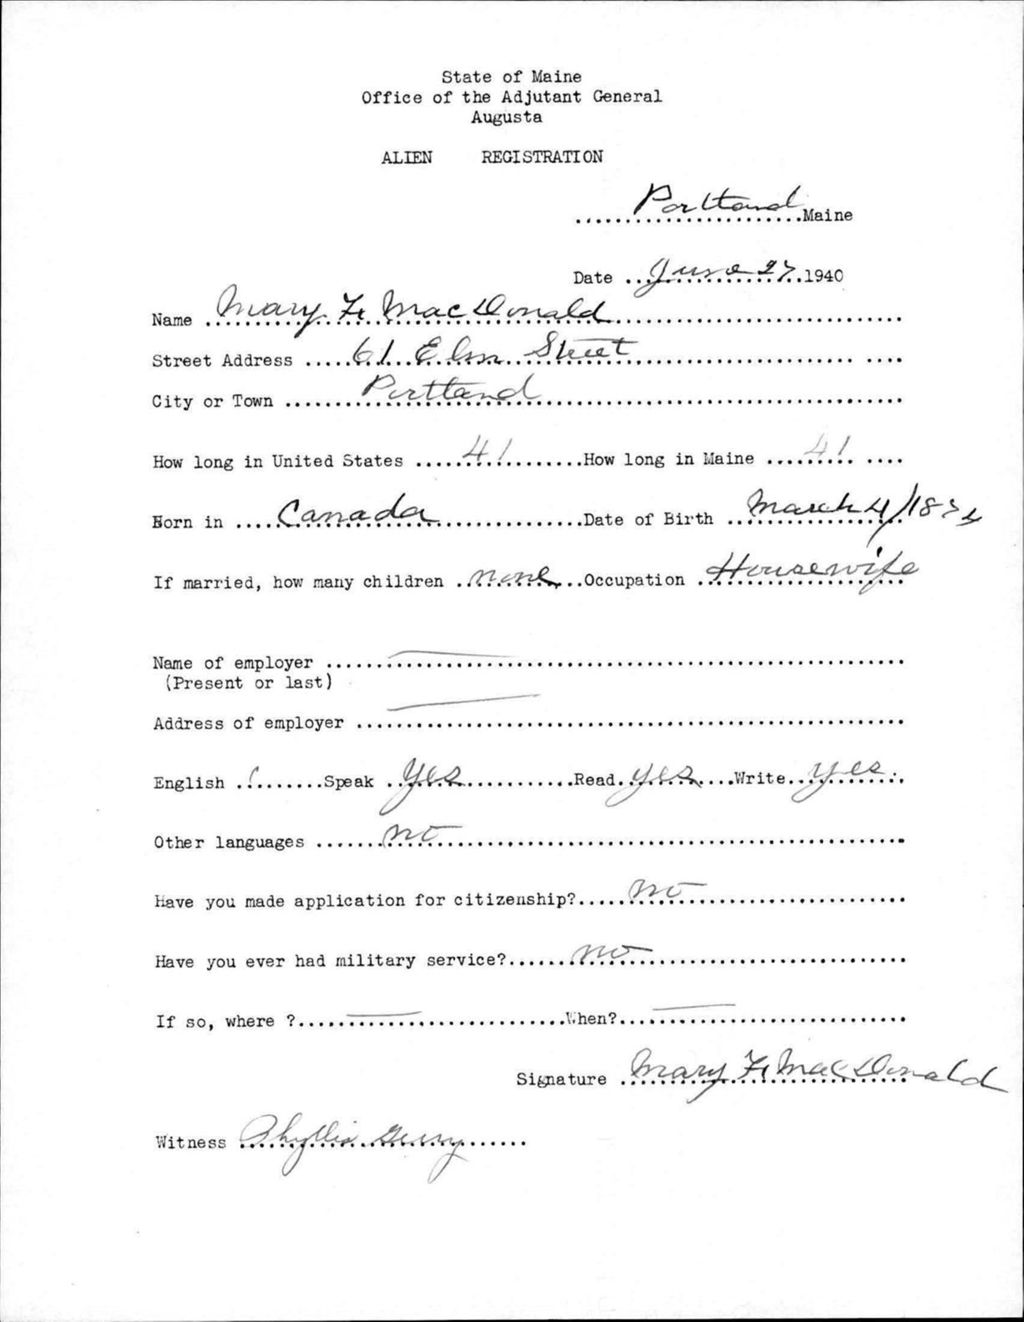 State of Maine
Office of the Adjutant General
Augusta
ALIEN REGISTRATION
Portland Maine
Date June 27 1940
Name Mary F. MacDonald
Street Address 61 Elm Street
City or Town Portland
How long in United States 41 How long in Maine 41
Born in Canada Date of Birth March 4/
If married, how many children none Occupation Housewife
Name of employer
(Present or last)
Address of employer
English Speak Yes Read yes Write yes
Other languages no
Have you made application for citizenship? no
Have you ever had military service? no
If so, where ? When?
Signature Mary F. MacDonald
Witness Phyllis